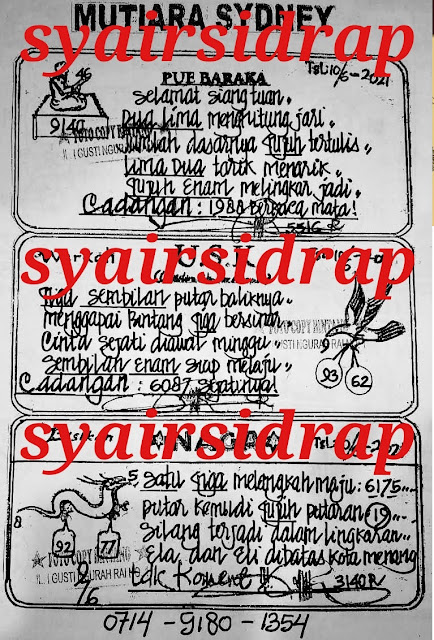 MUTIARA SYDNEY
syairsidrap
PUE BARAKA
Tgl: 10/6-2021
46
9140
Selamat siang tuan..
Dua Lima menghitung jari.
TOTO COPY BINTANG
JL. I GUSTI NGURAH RAI
dasarnya Tujuh tertulis..
Lima Dua tarik menarik..
Tujuh Enam melingkar jadi.
Cadangan: 1988 berkaca mata!
5516 R
syairsidrap
Tiga Sembilan putar baliknya..
menggapai Bintang Tiga bersinar..
Cinta sejati diawal minggu..
Sembilan Enam siap melaju..
Cadangan: 6087
TOTO COPY BINTANG
GUSTI NGURAH RAI
9
93
62
syairsidrap
5
8
92
77
9/6
Satu Tiga melangkah maju: 6175..
putar kemudi Tujuh putaran 19...
Silang terjadi dalam lingkaran..
Ela, dan Eli dibatas kota menang
TOTO COPY BINTANG
JL. I GUSTI NGURAH RAI
3140 R
0714 - 9180 - 1354